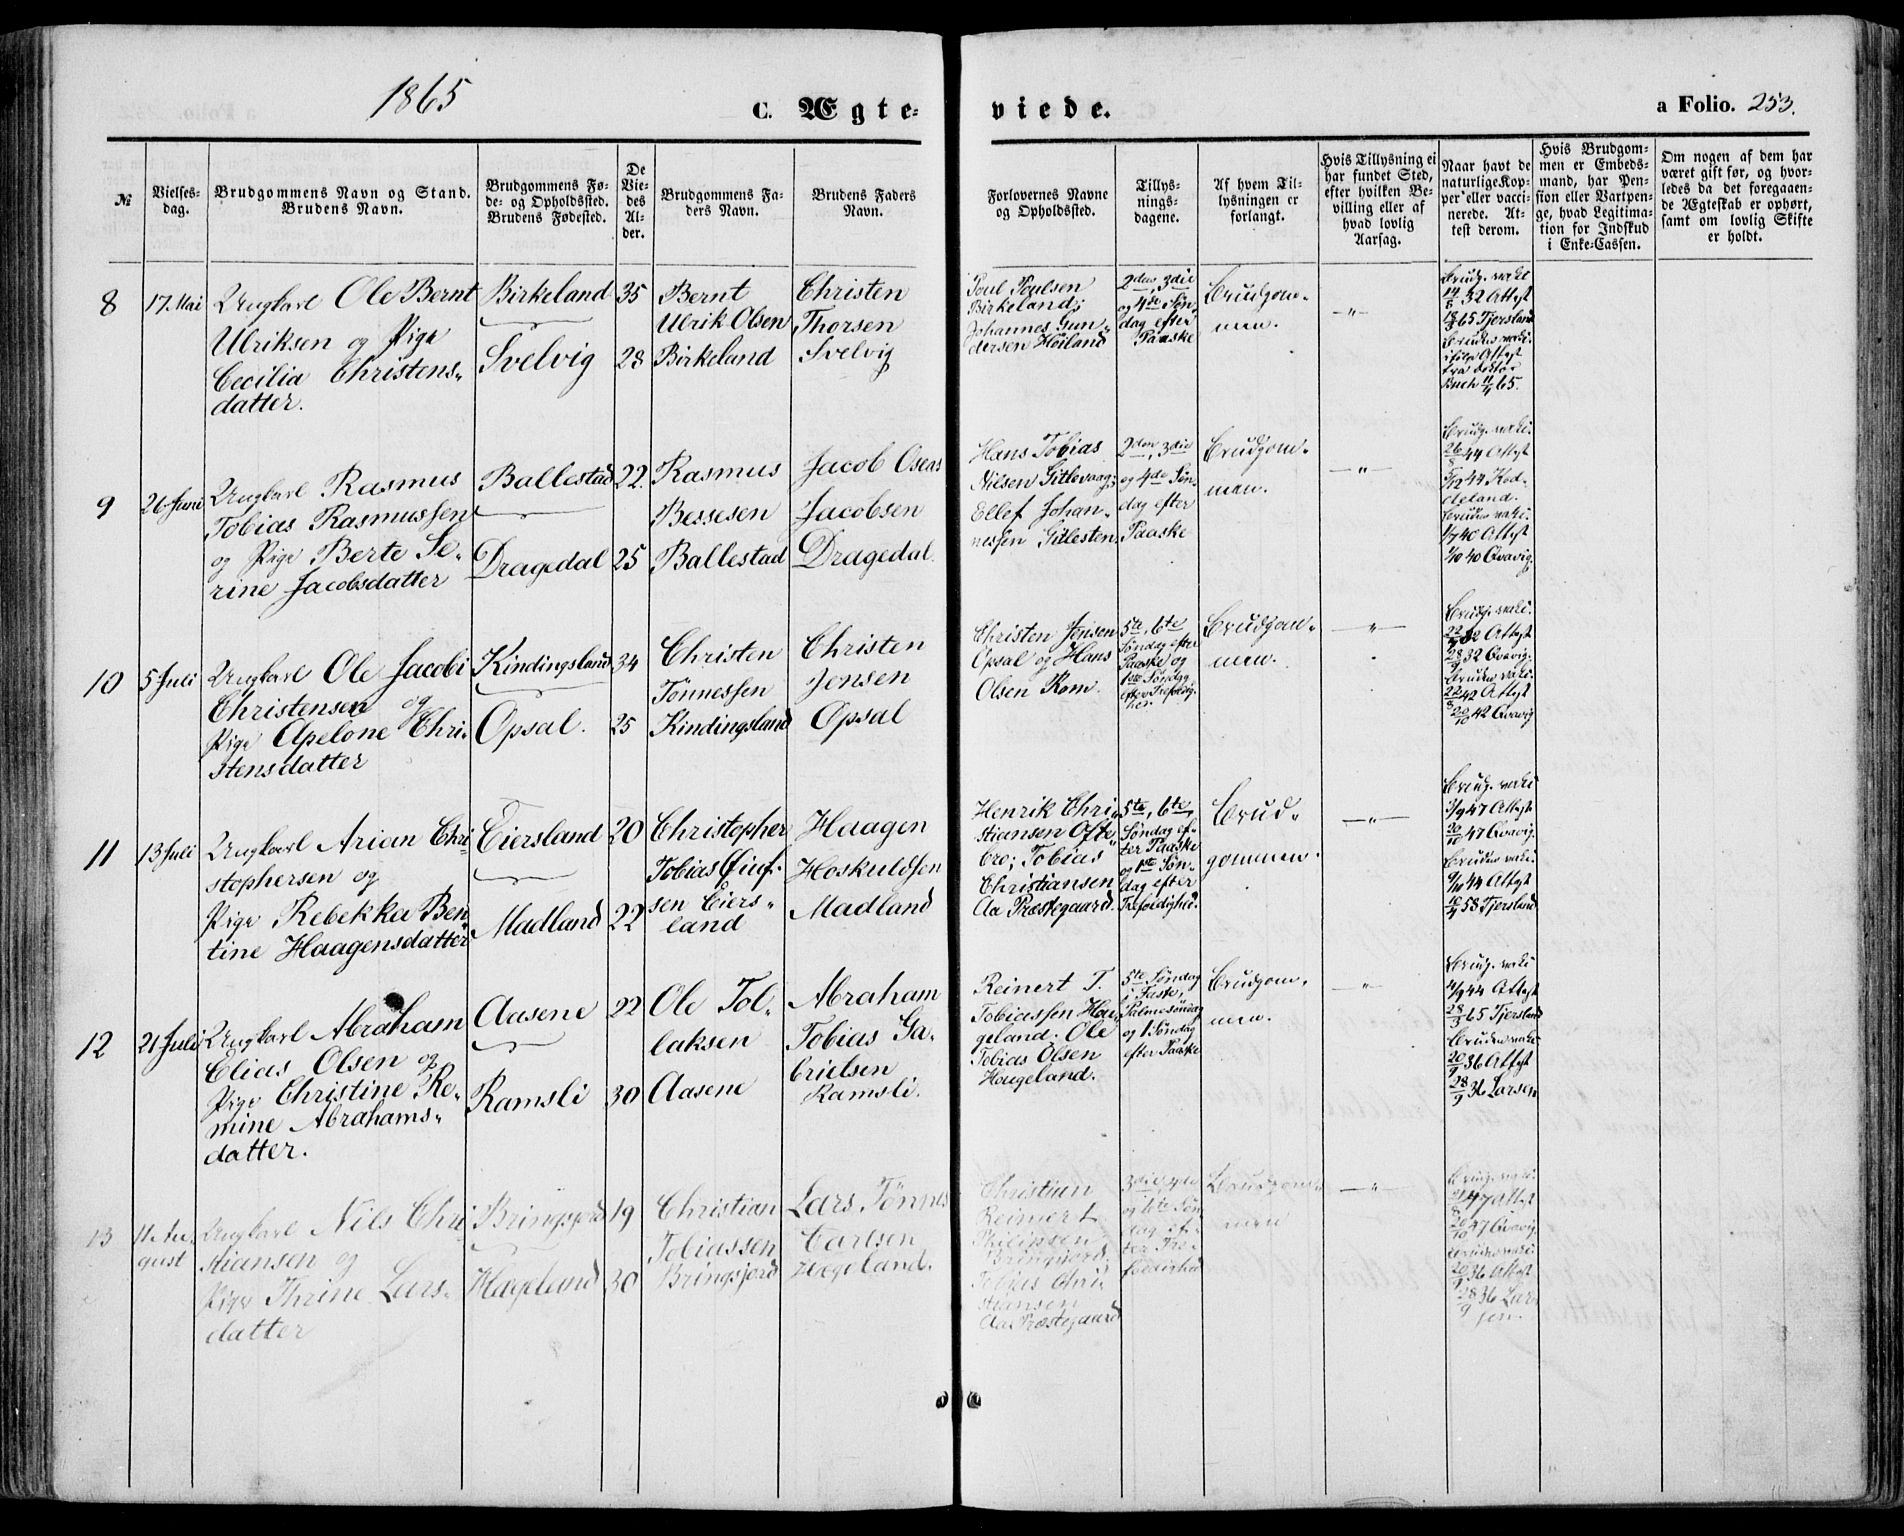 1865
C. Ægte-
viede.
a Folio. 253.
№
Vielses-
dag.
Brudgommens Navn og Stand.
Brudens Navn.
Brudgommens Fø-
de- og Opholdssted.
Brudens Fødested.
De
Vie-
des
Al-
der.
Brudgommens Fa-
ders Navn.
Brudens Faders
Navn.
Forlovernes Navne
og Opholdssted.
Tillys-
nings-
dagene.
Af hvem Til-
lysningen er
forlangt.
Hvis Tillysning ei
har fundet Sted,
efter hvilken Be-
villing eller af
hvad lovlig
Aarsag.
Naar havt de
naturlige Kop-
per eller vacci-
nerede. At-
test derom.
Hvis Brudgom-
men er Embeds-
mand, har Pen-
sion eller Vartpen-
ge, hvad Legitima-
tion for Indskud
i Enke-Cassen.
Om nogen af dem har
været gift før, og hvor-
ledes da det foregaaen-
de Ægteskab er ophørt,
samt om lovlig Skifte
er holdt.
8
17. Mai
Ungkarl Ole Bernt
Ulriksen og Pige
Cecilia Christens-
datter.
Birkeland
Svelvig
35
28
Bernt
Ulrik Olsen
Birkeland
Christen
Thorsen
Svelvig
Poul Poulsen
Birkeland;
Johannes Gun-
dersen Høiland
2den, 3die
og 4de Søn-
dag efter
Paaske
Brudgom-
men.
-"-
Brudg. vakci
14/5 32 Attest
18/3 65 Tjersland
Brudens vakci.
ifølge Attest
fra Doctor
Buch 11/4 65.
9
26 Juni
Ungkarl Rasmus
Tobias Rasmussen
og Pige Berte Se-
rine Jacobsdatter
Ballestad
Dragedal
22.
25
Rasmus
Bessesen
Ballestad
Jacob Oseas
Jacobsen
Dragedal.
Hans Tobias
Nilsen Gitlevaag;
Ellef Johan-
nessen Gitlesten.
2den, 3die
og 4de Søn-
dag efter
Paaske
Brudgom-
men.
-"-
Brudg. vakci.
26/8 44 Attest
5/12 44 Kod-
deland.
Brudens vakci.
1/7 40 Attest
1/10 40 Qvavig.
10
5 Juli
Ungkarl Ole Jacobi
Christensen og
Pige Apelone Chri-
stensdatter
Kindingsland
Opsal.
34
25
Christen
Tønnessen
Kindingsland
Christen
Jensen
Opsal
Christen Jensen
Opsal og Hans
Olsen Rom.
5te, 6te
Søndag efter
Paaske og
1ste Søndag
efter Trefoldig-
hed.
Brudgom-
men.
-"-
Brudg. vakci.
22/7 32 Attest
28/9 32 Qvavig.
Brudens vakci.
22/8 42 Attest
20/10 42 Qvavig
11
13 Juli
Ungkarl Arian Chri-
stophersen og
Pige Rebekka Ben-
tine Haagensdatter
Eiersland
Madland
20
22
Christopher
Tobias
sen Eiers-
land
Haagen
Hoskuldsen
Madland
Henrik Chri-
stiansen Ofte-
bro; Tobias
Christiansen
Aa Præstegaard.
5te, 6te
Søndag ef-
ter Paaske
og 1ste Søn-
dag efter
Trefoldighed.
Brud-
gommen.
-"-
Brudg. vakci
3/9 47 Attest
20/10 47 Qvavig.
Brudens vakci.
9/10 44 Attest
16/4 58 Tjersland.
12
21 Juli
Ungkarl Abraham
Elias Olsen og
Pige Christine Re-
mine Abrahams-
datter.
Aasene
Ramsli
22
30
Ole Tol-
laksen
Aasene
Abraham
Tobias Ga-
brielsen
Ramsli.
Reinert T.
Tobiassen Hau-
geland. Ole
Tobias Olsen
Haugeland.
5te Søndag
i Faste,
Palmesøndag
og 1 Søndag
efter Paaske
Brudgom-
men.
-"-
Brudg. vakci
4/9 44 Attest
28/3 65 Tjersland
Brudens vakci
20/9 36 Attest
28/9 36 Larsen
13
11. Au-
gust
Ungkarl Nils Chri-
stiansen og
Pige Thrine Lars-
datter
Bringsjord
Hageland
19
30
Christian
Tobiassen
Bringsjord
Lars Tønnes
Carlsen
Hægeland.
Christian
Reinert
Philipsen
Bringsjord.
Tobias Chri-
stiansen
Aa Præstegaard
3die, 4de
og 6te Søn-
dag ef-
ter Tre-
foldighed
Brudgom-
men
-"-
Brudg. vakci.
47 Attest
20/10 47 Qvavig
Brudens vakci.
20/9 36 Attest
28/9 36 Lar-
sen.